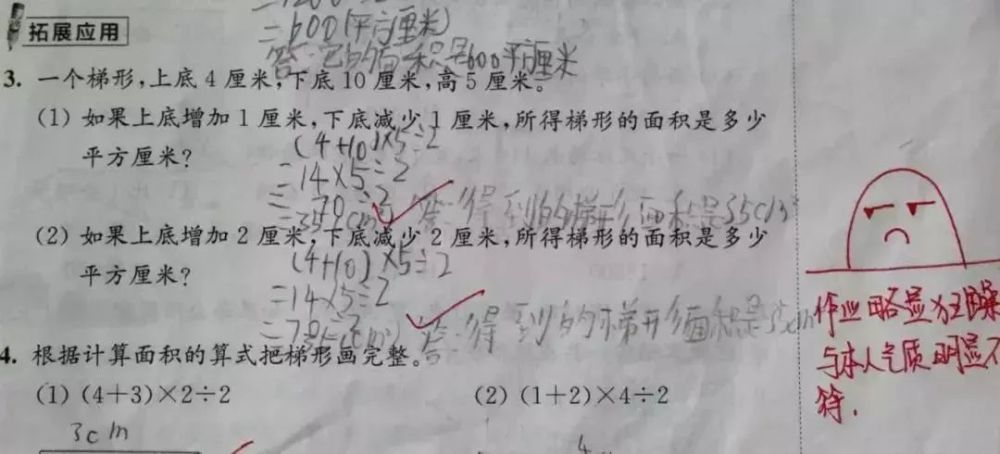 =600(平方厘米)
答:它的面积是600平方厘米
拓展应用
3. 一个梯形,上底 4 厘米,下底 10 厘米,高 5 厘米。
(1) 如果上底增加 1 厘米,下底减少 1 厘米,所得梯形的面积是多少
平方厘米?
(4+10)×5÷2
=14×5÷2
=70÷2
=35(cm²) 答:得到的梯形面积是35cm²
(2) 如果上底增加 2 厘米,下底减少 2 厘米,所得梯形的面积是多少
平方厘米?
(4+10)×5÷2
=14×5÷2
=70÷2
答:得到的梯形面积是
4. 根据计算面积的算式把梯形画完整。
(1) (4+3)×2÷2
(2) (1+2)×4÷2
3cm
4
作业略显狂躁
与本人气质明显不
符.